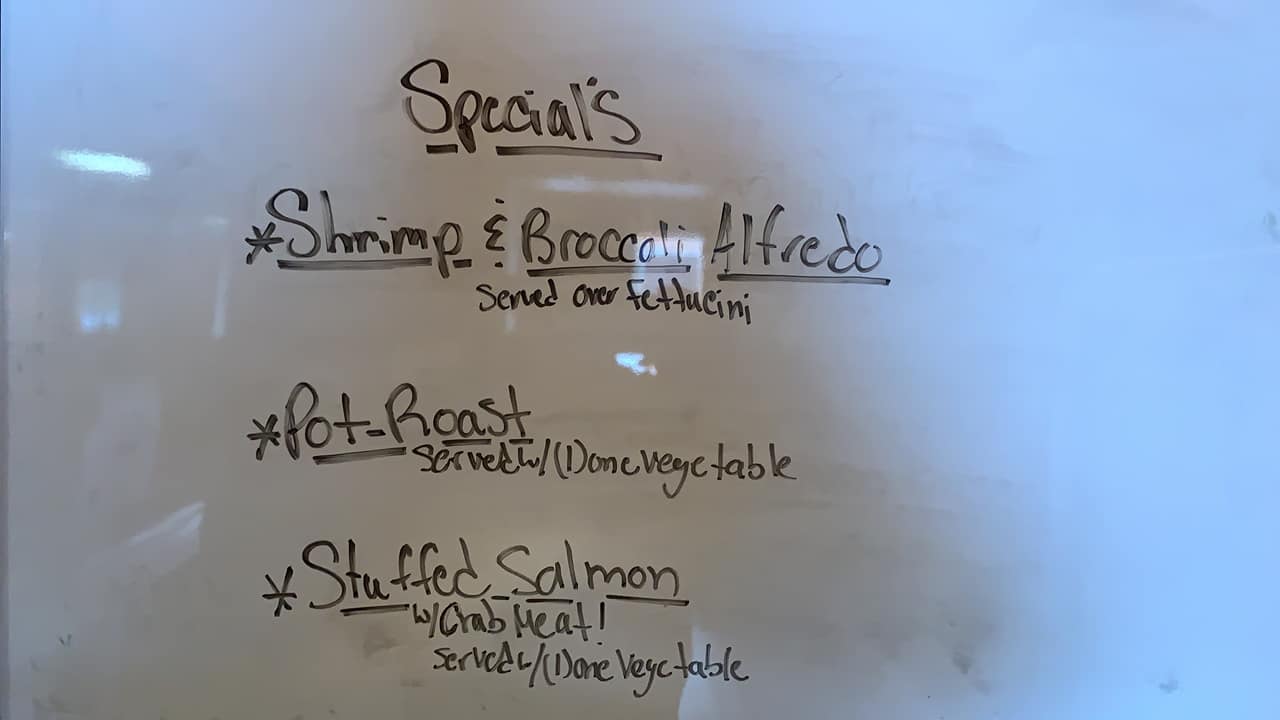 Special's
*Shrimp & Broccoli Alfredo
Served over Fettucini
*Pot-Roast
Served w/(1) one vegetable
*Stuffed Salmon
w/Crab Meat!
Served w/(1) one vegetable